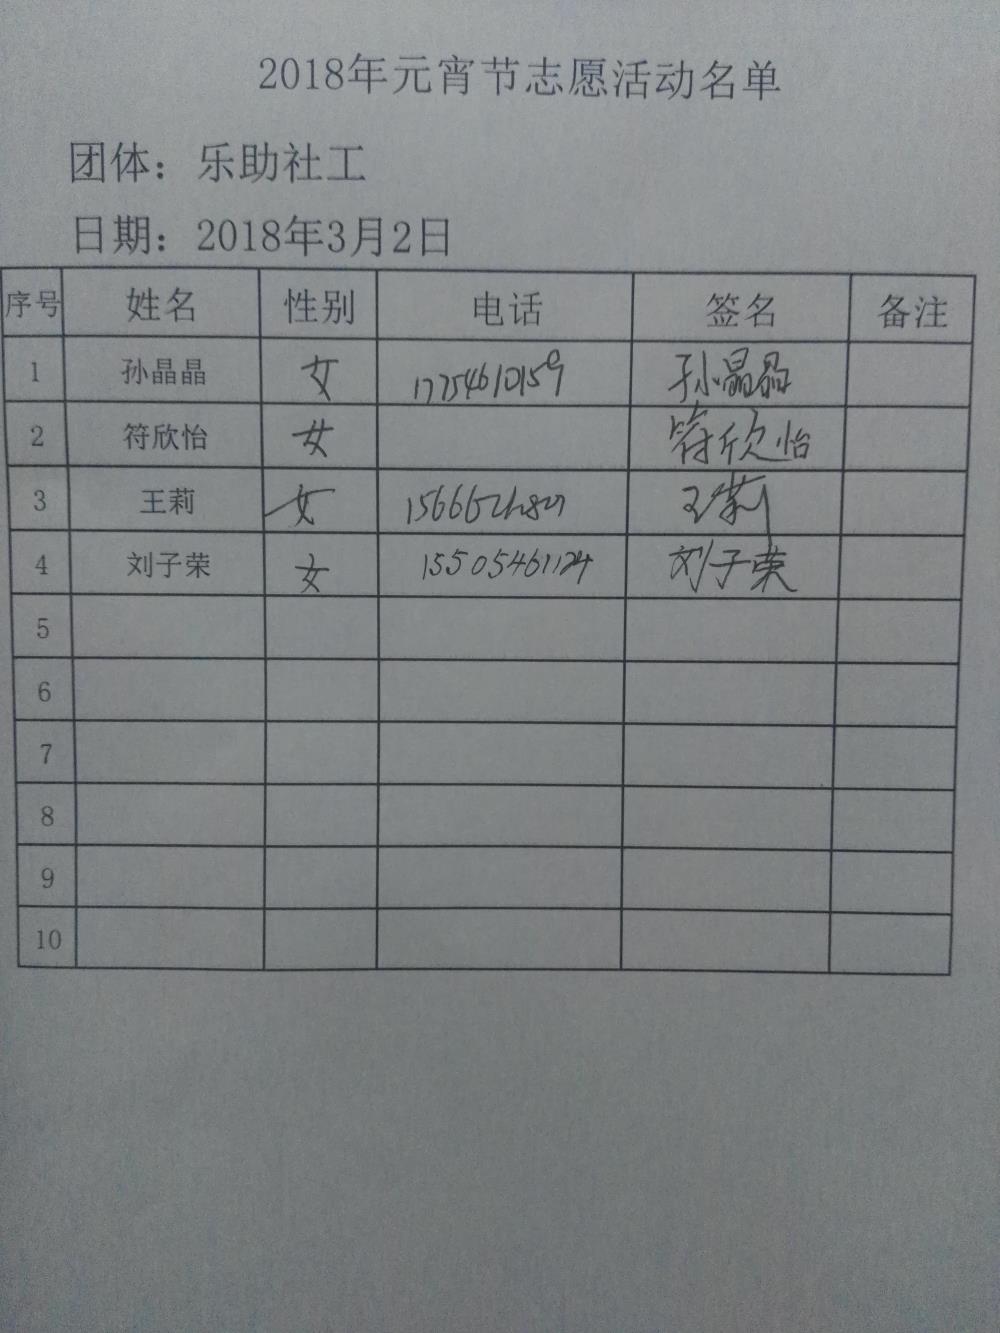 2018年元宵节志愿活动名单
团体：乐助社工
日期：2018年3月2日
序号 姓名 性别 电话 签名 备注
1 孙晶晶 女 17754610159 孙晶晶
2 符欣怡 女 符欣怡
3 王莉 女 王莉
4 刘子荣 女 15505461124 刘子荣
5
6
7
8
9
10